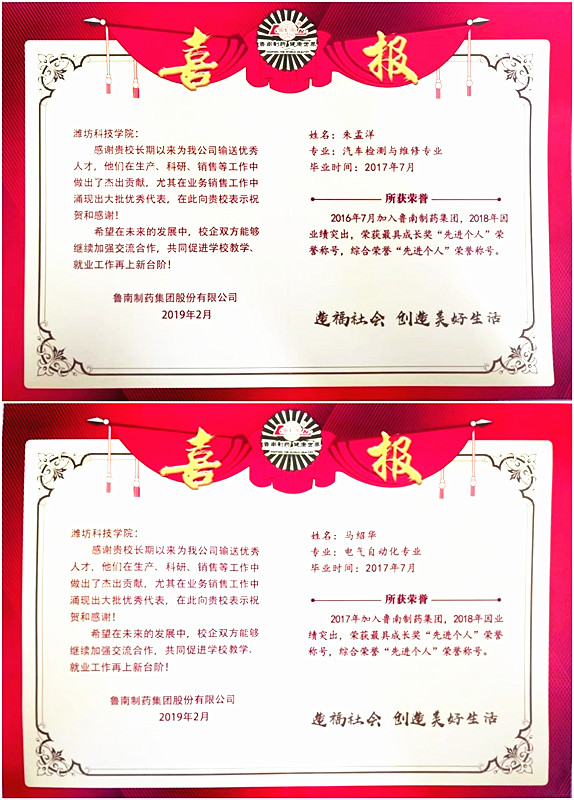 喜 报
鲁南制药 健康世界
潍坊科技学院：
感谢贵校长期以来为我公司输送优秀
人才，他们在生产、科研、销售等工作中
做出了杰出贡献，尤其在业务销售工作中
涌现出大批优秀代表，在此向贵校表示祝
贺和感谢！
希望在未来的发展中，校企双方能够
继续加强交流合作，共同促进学校教学、
就业工作再上新台阶！
鲁南制药集团股份有限公司
2019年2月
姓名：朱孟洋
专业：汽车检测与维修专业
毕业时间：2017年7月
所获荣誉
2016年7月加入鲁南制药集团，2018年因
业绩突出，荣获最具成长奖“先进个人”荣
誉称号，综合荣誉“先进个人”荣誉称号。
造福社会 创造美好生活
喜 报
鲁南制药 健康世界
潍坊科技学院：
感谢贵校长期以来为我公司输送优秀
人才，他们在生产、科研、销售等工作中
做出了杰出贡献，尤其在业务销售工作中
涌现出大批优秀代表，在此向贵校表示祝
贺和感谢！
希望在未来的发展中，校企双方能够
继续加强交流合作，共同促进学校教学、
就业工作再上新台阶！
鲁南制药集团股份有限公司
2019年2月
姓名：马绍华
专业：电气自动化专业
毕业时间：2017年7月
所获荣誉
2017年加入鲁南制药集团，2018年因业
绩突出，荣获最具成长奖“先进个人”荣誉
称号，综合荣誉“先进个人”荣誉称号。
造福社会 创造美好生活